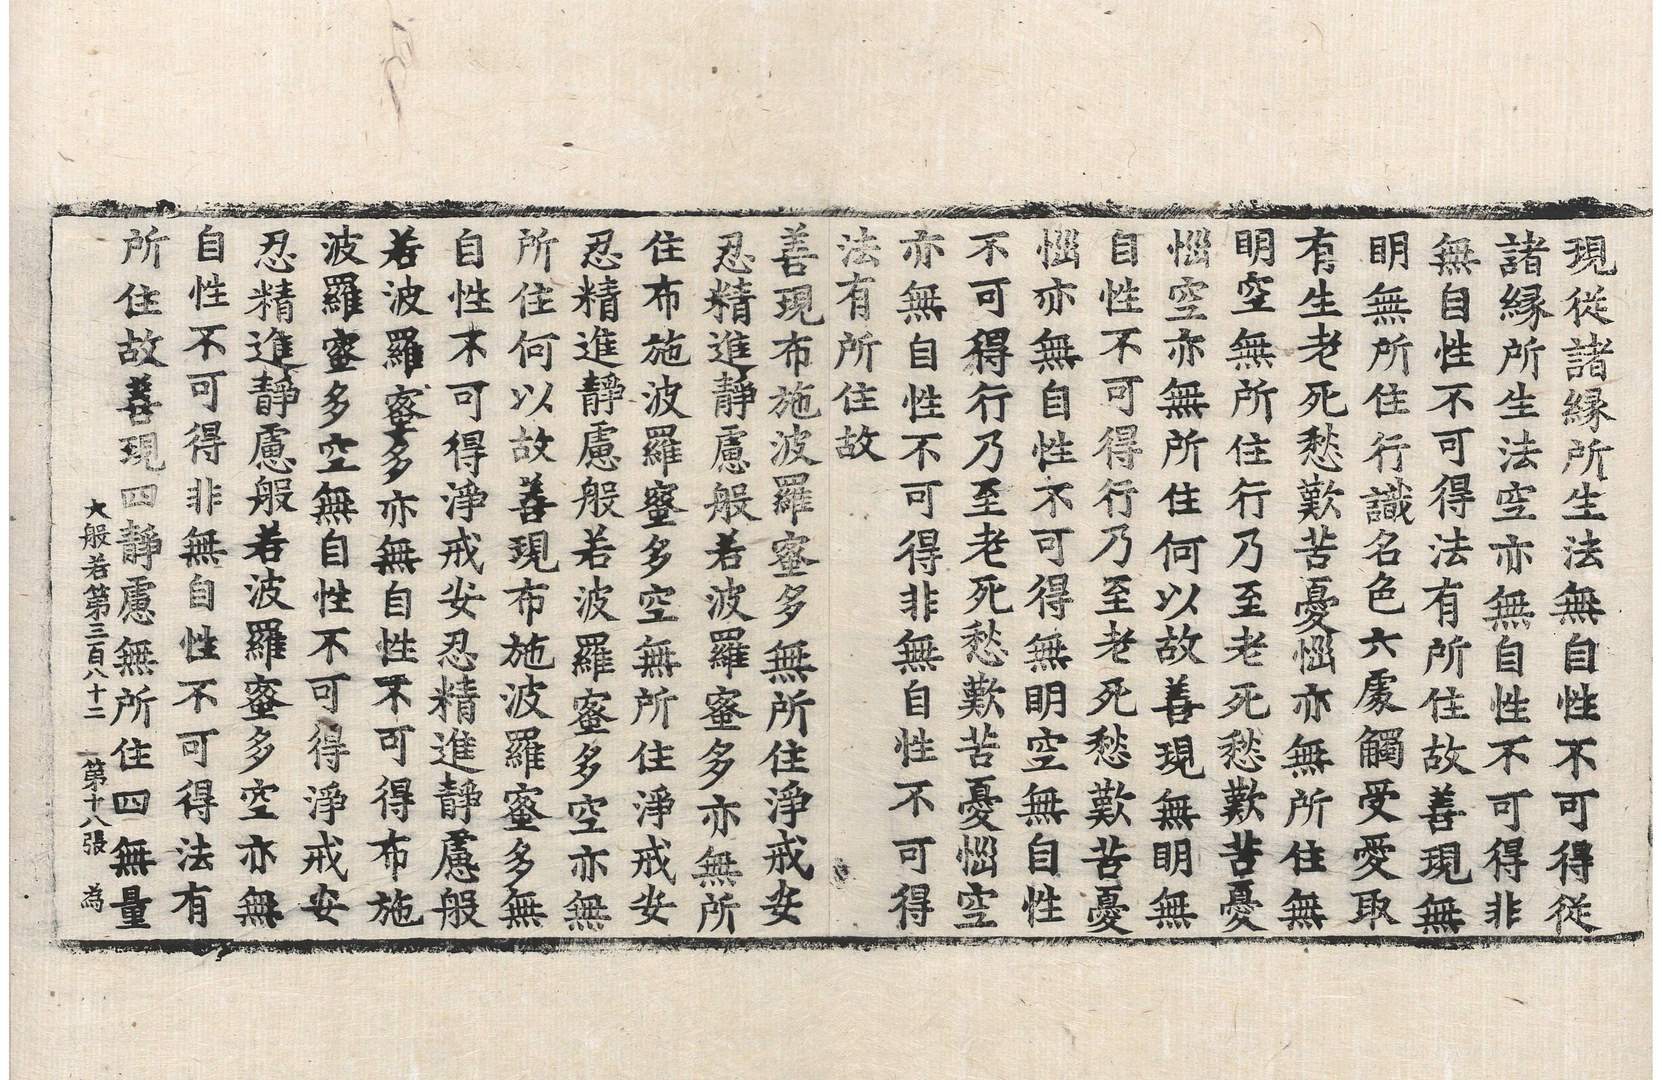 現從諸縁所生法無自性不可得從
諸縁所生法空亦無自性不可得非
無自性不可得法有所住故善現無
明無所住行識名色六處觸受愛取
有生老死愁歎苦憂惱亦無所住無
明空無所住行乃至老死愁歎苦憂
惱空亦無所住何以故善現無明無
自性不可得行乃至老死愁歎苦憂
惱亦無自性不可得無明空無自性
不可得行乃至老死愁歎苦憂惱空
亦無自性不可得非無自性不可得
法有所住故
善現布施波羅蜜多無所住淨戒安
忍精進靜慮般若波羅蜜多亦無所
住布施波羅蜜多空無所住淨戒安
忍精進靜慮般若波羅蜜多空亦無
所住何以故善現布施波羅蜜多無
自性不可得淨戒安忍精進靜慮般
若波羅蜜多亦無自性不可得布施
波羅蜜多空無自性不可得淨戒安
忍精進靜慮般若波羅蜜多空亦無
自性不可得非無自性不可得法有
所住故善現四靜慮無所住四無量
大般若第三百八十二 第十八張 為